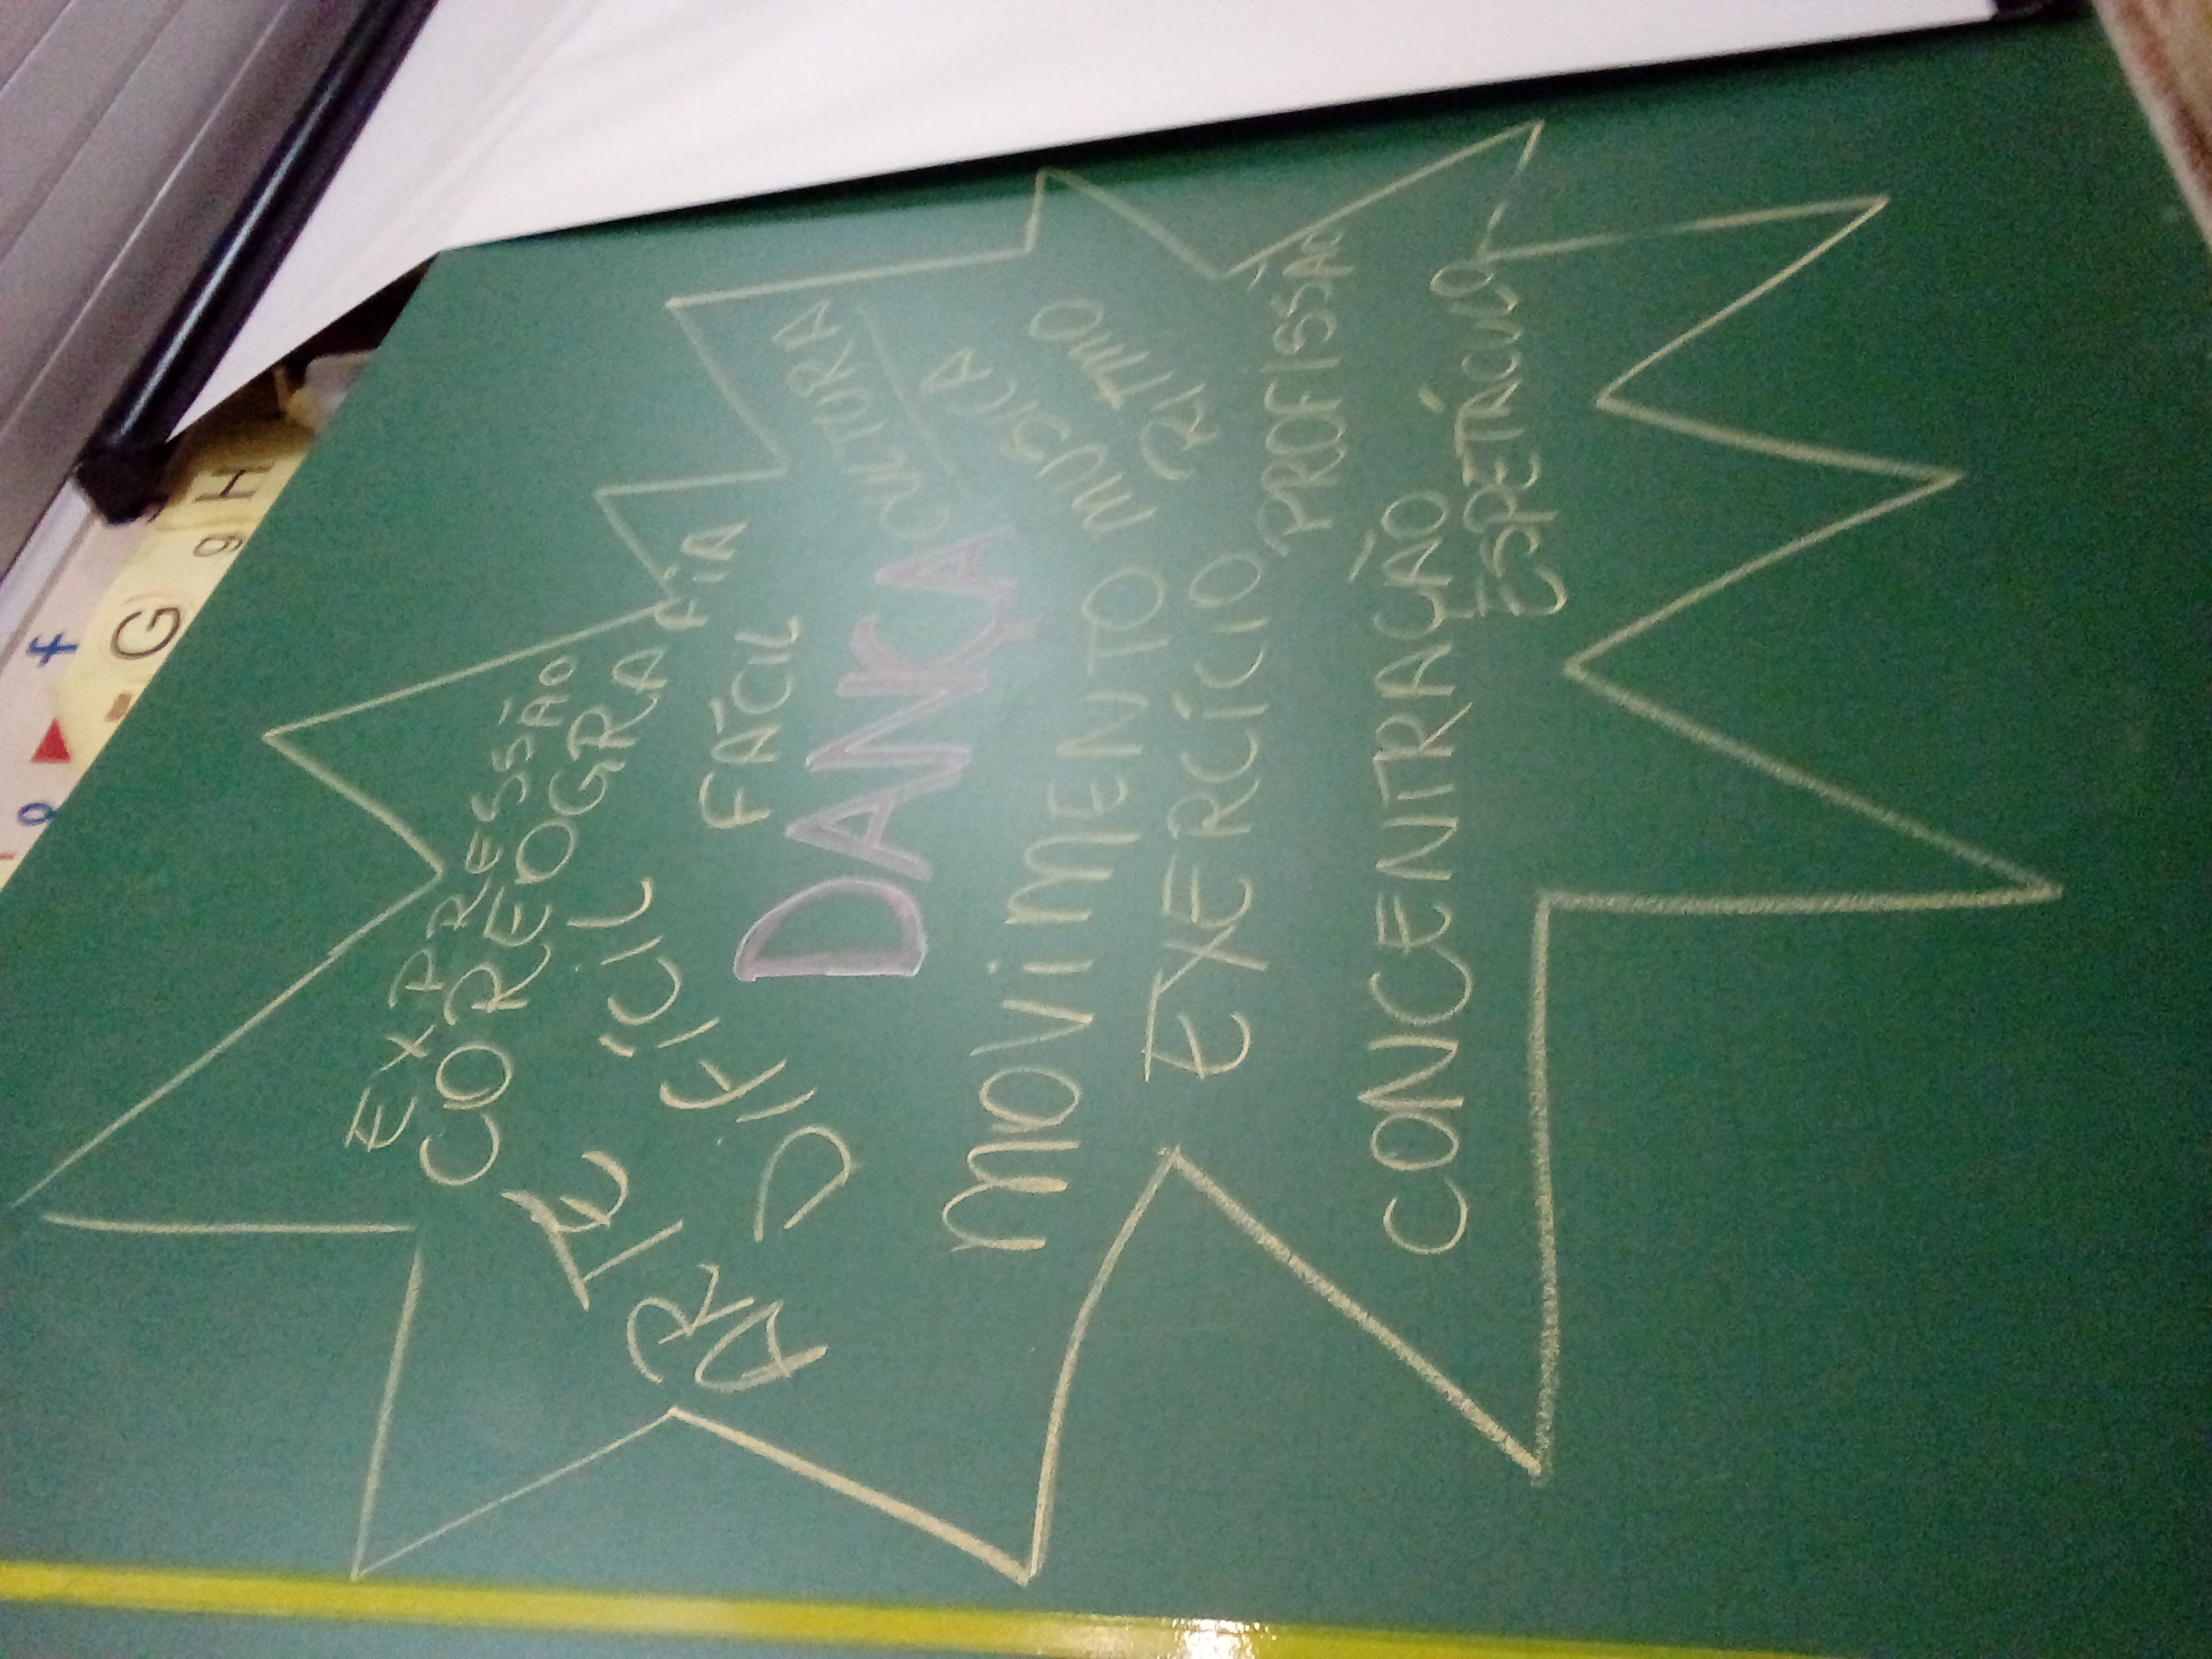 EXPRESSÃO
COREOGRAFIA
ARTE
DIFÍCIL
FÁCIL
DANÇA
CULTURA
MÚSICA
RITMO
MOVIMENTO
EXERCÍCIO
PROFISSÃO
CONCENTRAÇÃO
ESPETÁCULO
f
G g H